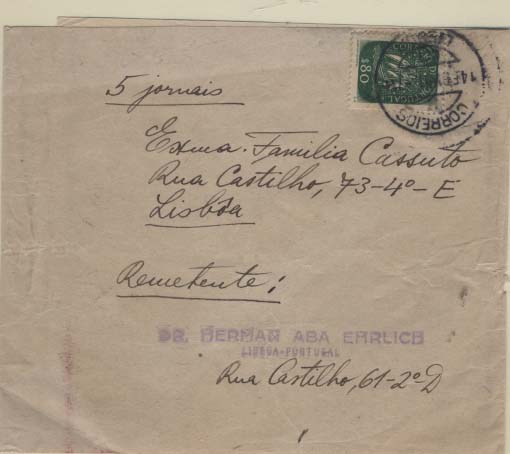 $80
CORREIOS
14 FE
5 jornais
Exma. Familia Cassuto
Rua Castilho, 73-4º-E
Lisbôa
Remetente:
DR. HERMAN ABA EHRLICH
LISBOA-PORTUGAL
Rua Castilho, 61-2º-D